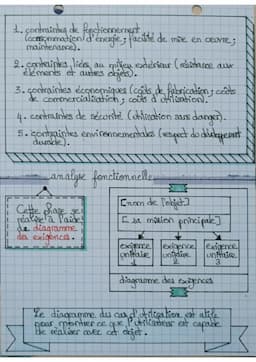 1. contraintes de fonctionnement
(consommation d'énergie, facilité de mise en œuvre,
maintenance).
2. contraintes liées au milieu extérieur (résistance aux
éléments et autres objets).
3. contraintes économiques (coûts de fabrication, coûts
de commercialisation, coûts d'utilisation).
4. contraintes de sécurité (utilisation sans danger).
5. contraintes environnementales (respect du développement
durable).
analyse fonctionnelle
Cette phase se
réalise à l'aide
du diagramme
des exigences.
[nom de l'objet]
[sa mission principale]
exigence
unitaire
1
exigence
unitaire
2
exigence
unitaire
3
diagramme des exigences
Le diagramme du cas d'utilisation est utile
pour montrer ce que l'utilisateur est capable
de réaliser avec cet objet.